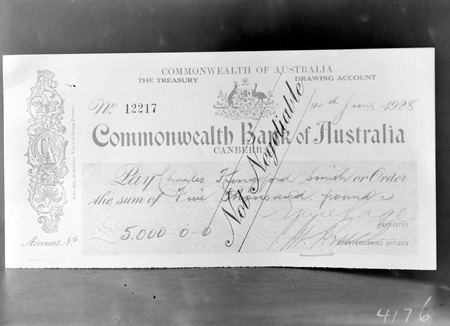 COMMONWEALTH OF AUSTRALIA
THE TREASURY DRAWING ACCOUNT
No 12217 14th June 1928
Commonwealth Bank of Australia
CANBERRA
Not Negotiable
Pay Charles Kingsford Smith or Order
the sum of Five thousand pounds
£5,000-0-0
PAYMASTER
COUNTERSIGNING OFFICER
Account No
4176